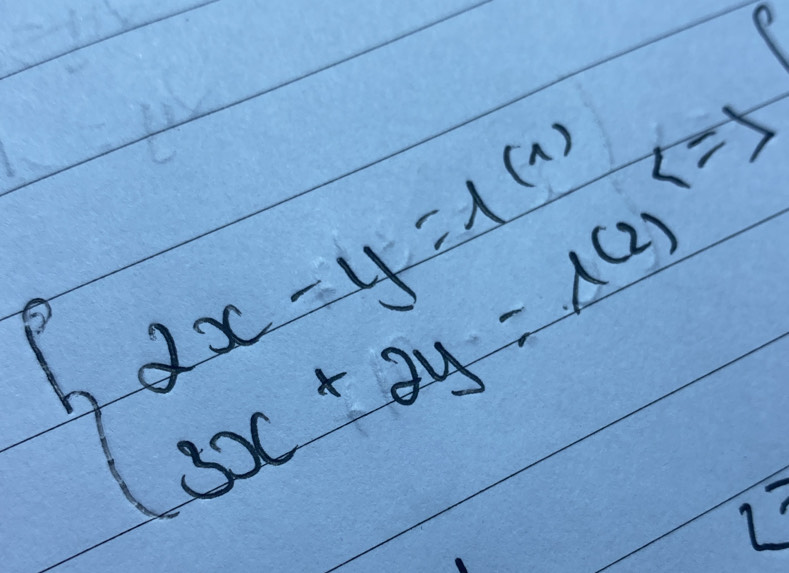 2x - y = 1 (1) <=>
3x + 2y = 1 (2)